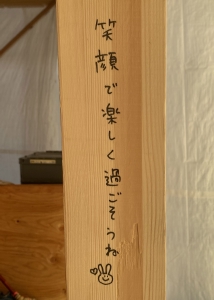 笑顔で楽しく過ごそうね